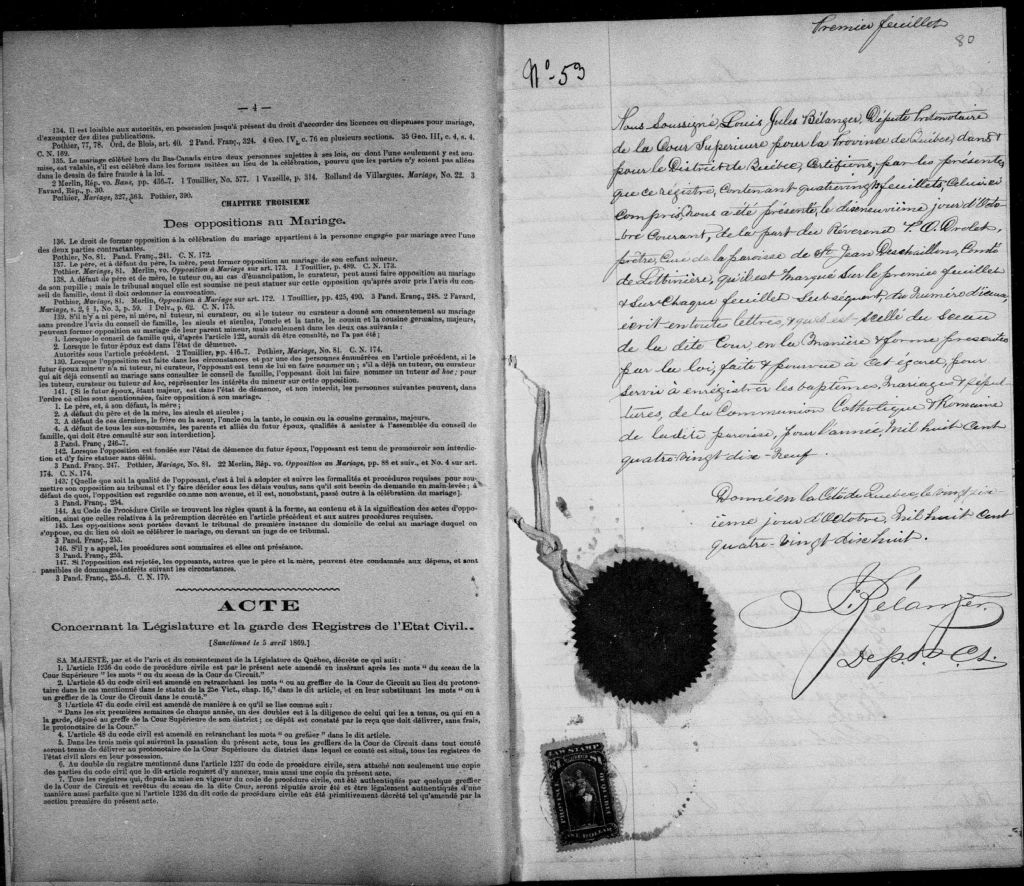 — 4 —
134. Il est loisible aux autorités, en possession jusqu'à présent du droit d'accorder des licences ou dispenses pour mariage,
d'exempter des dites publications.
Pothier, 77, 78. Ord. de Blois, art. 40. 2 Pand. Franç., 324. 4 Geo. IV, c. 76 en plusieurs sections. 35 Geo. III, c. 4, s. 4.
C. N. 169.
135. Le mariage célébré hors du Bas-Canada entre deux personnes sujettes à ses lois, ou dont l'une seulement y est sou-
mise, est valable, s'il est célébré dans les formes usitées au lieu de la célébration, pourvu que les parties n'y soient pas allées
dans le dessin de faire fraude à la loi.
2 Merlin, Rép. vo. Bans, pp. 456-7. 1 Touillier, No. 577. 1 Vazeille, p. 314. Rolland de Villargues. Mariage, No. 22. 3
Favard, Rép., p. 30.
Pothier, Mariage, 327, 363. Pothier, 390.
CHAPITRE TROISIEME
Des oppositions au Mariage.
136. Le droit de former opposition à la célébration du mariage appartient à la personne engagée par mariage avec l'une
des deux parties contractantes.
Pothier, No. 81. Pand. Franç., 241. C. N. 172.
137. Le père, et à défaut du père, la mère, peut former opposition au mariage de son enfant mineur.
Pothier, Mariage, 81. Merlin, vo. Opposition à Mariage sur art. 173. 1 Touillier, p. 489. C. N. 173.
138. A défaut de père et de mère, le tuteur ou, au cas d'émancipation, le curateur, peut aussi faire opposition au mariage
de son pupille; mais le tribunal auquel elle est soumise ne peut statuer sur cette opposition qu'après avoir pris l'avis du con-
seil de famille, dont il doit ordonner la convocation.
Pothier, Mariage, 81. Merlin, Opposition à Mariage sur art. 172. 1 Touillier, pp. 425, 490. 3 Pand. Franç., 248. 2 Favard,
Mariage, s. 2, § 1, No. 3, p. 59. 1 Delv., p. 62. C. N. 175.
139. S'il n'y a ni père, ni mère, ni tuteur, ni curateur, ou si le tuteur ou curateur a donné son consentement au mariage
sans prendre l'avis du conseil de famille, les aieuls et aieules, l'oncle et la tante, le cousin et la cousine germains, majeurs,
peuvent former opposition au mariage de leur parent mineur, mais seulement dans les deux cas suivants:
1. Lorsque le conseil de famille qui, d'après l'article 122, aurait dû être consulté, ne l'a pas été:
2. Lorsque le futur époux est dans l'état de démence.
Autorités sous l'article précédent. 2 Touillier, pp. 416-7. Pothier, Mariage, No. 81. C. N. 174.
130. Lorsque l'opposition est faite dans les circonstances et par une des personnes énumérées en l'article précédent, si le
futur époux mineur n'a ni tuteur, ni curateur, l'opposant est tenu de lui en faire nommer un; s'il a déjà un tuteur, ou curateur
qui ait déjà consenti au mariage sans consulter le conseil de famille, l'opposant doit lui faire nommer un tuteur ad hoc; pour
les tuteur, curateur ou tuteur ad hoc, représenter les intérêts du mineur sur cette opposition.
141. [Si le futur époux, étant majeur, est dans l'état de démence, et non interdit, les personnes suivantes peuvent, dans
l'ordre où elles sont mentionnées, faire opposition à son mariage.
1. Le père, et, à son défaut, la mère;
2. A défaut du père et de la mère, les aieuls et aieules;
3. A défaut de ces derniers, le frère ou la sœur, l'oncle ou la tante, le cousin ou la cousine germains, majeurs.
4. A défaut de tous les sus-nommés, les parents et alliés du futur époux, qualifiés à assister à l'assemblée du conseil de
famille, qui doit être consulté sur son interdiction].
3 Pand. Franç., 246-7.
142. Lorsque l'opposition est fondée sur l'état de démence du futur époux, l'opposant est tenu de promouvoir son interdic-
tion et d'y faire statuer sans délai.
3 Pand. Franç. 247. Pothier, Mariage, No. 81. 22 Merlin, Rép. vo. Opposition au Mariage, pp. 88 et suiv., et No. 4 sur art.
174. C. N. 174.
143. [Quelle que soit la qualité de l'opposant, c'est à lui à adopter et suivre les formalités et procédures requises pour sou-
mettre son opposition au tribunal et l'y faire décider sous les délais voulus, sans qu'il soit besoin de demande en main levée; à
défaut de quoi, l'opposition est regardée comme non avenue, et il est, nonobstant, passé outre à la célébration du mariage].
3 Pand. Franç., 254.
144. Au Code de Procédure Civile se trouvent les règles quant à la forme, au contenu et à la signification des actes d'oppo-
sition, ainsi que celles relatives à la péremption décrétée en l'article précédent et aux autres procédures requises.
145. Les oppositions sont portées devant le tribunal de première instance du domicile de celui au mariage duquel on
s'oppose, ou du lieu où doit se célébrer le mariage, ou devant un juge de ce tribunal.
3 Pand. Franç., 253.
146. S'il y a appel, les procédures sont sommaires et elles ont préséance.
3 Pand. Franç., 253.
147. Si l'opposition est rejetée, les opposants, autres que le père et la mère, peuvent être condamnés aux dépens, et sont
passibles de dommages-intérêts suivant les circonstances.
3 Pand. Franç., 255-6. C. N. 179.
ACTE
Concernant la Législature et la garde des Registres de l'Etat Civil.
[Sanctionné le 5 avril 1869.]
SA MAJESTE, par et de l'avis et du consentement de la Législature de Québec, décrète ce qui suit:
1. L'article 1236 du code de procédure civile est par le présent acte amendé en insérant après les mots "du sceau de la
Cour Supérieure" les mots "ou du sceau de la Cour de Circuit."
2. L'article 45 du code civil est amendé en retranchant les mots "ou au greffier de la Cour de Circuit au lieu du protono-
taire dans le cas mentionné dans le statut de la 25e Vict., chap. 16," dans le dit article, et en leur substituant les mots "ou à
un greffier de la Cour de Circuit dans le comté."
3. L'article 47 du code civil est amendé de manière à ce qu'il se lise comme suit:
"Dans les six premières semaines de chaque année, un des doubles est à la diligence de celui qui les a tenus, ou qui en a
la garde, déposé au greffe de la Cour Supérieure de son district; ce dépôt est constaté par le reçu que doit délivrer, sans frais,
le protonotaire de la Cour."
4. L'article 48 du code civil est amendé en retranchant les mots "ou grefiier" dans le dit article.
5. Dans les trois mois qui suivront la passation du présent acte, tous les greffiers de la Cour de Circuit dans tout comté
seront tenus de délivrer au protonotaire de la Cour Supérieure du district dans lequel ce comté est situé, tous les registres de
l'état civil alors en leur possession.
6. Au double du registre mentionné dans l'article 1237 du code de procédure civile, sera attaché non seulement une copie
des parties du code civil que le dit article requiert d'y annexer, mais aussi une copie du présent acte.
7. Tous les registres qui, depuis la mise en vigueur du code de procédure civile, ont été authentiqués par quelque greffier
de la Cour de Circuit et revêtus du sceau de la dite Cour, seront réputés avoir été et être légalement authentiqués d'une
manière aussi parfaite que si l'article 1236 du dit code de procédure civile eût été primitivement décrété tel qu'amendé par la
section première du présent acte.
Premier feuillet
80
No. 53
Nous Soussigné, Louis Jules Bélanger, Député Protonotaire
de la Cour Supérieure pour la Province de Québec, dans &
pour le District de Québec, Certifions, par les présentes
que ce registre, Contenant quatrevingts feuillets, Celui ci
compris, nous a été présenté, le dixneuvième jour d'Octo-
bre Courant, de la part du Révérend P. O. Drolet,
prêtre, Curé de la paroisse de St. Jean Deschaillons, Comté
de Lotbinière, qu'il est Marqué sur le premier feuillet
& sur chaque feuillet subséquent, du numéro d'iceux
écrit en toutes lettres, & qu'il est scellé du Sceau
de la dite Cour, en la Manière & forme prescrites
par la loi, faite & pourvue à cet égard, pour
servir à enregistrer les baptêmes, Mariages & sépul-
tures, de la Communion Catholique & Romaine
de la dite paroisse, pour l'année, Mil huit Cent
quatre-Vingt dix-Neuf.
Donné en la Cité de Québec, le vingt six-
ième jour d'Octobre, Mil huit Cent
quatre-Vingt dix huit.
J. Bélanger.
Dep. P. C. S.
LAW STAMP
PROVINCE
QUEBEC
$1
ONE DOLLAR